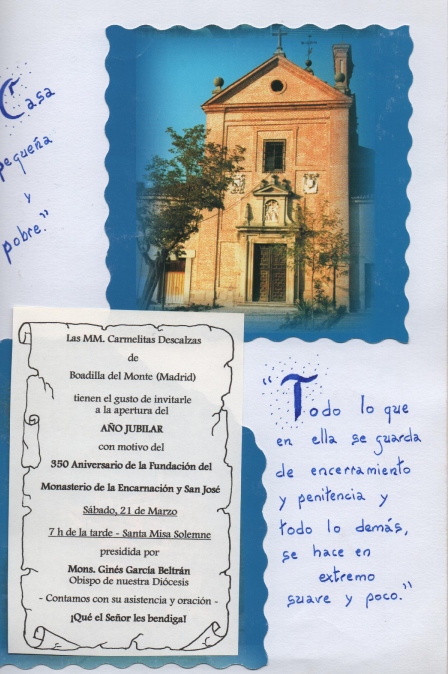 Casa
pequeña
y
pobre."
Las MM. Carmelitas Descalzas
de
Boadilla del Monte (Madrid)
tienen el gusto de invitarle
a la apertura del
AÑO JUBILAR
con motivo del
350 Aniversario de la Fundación del
Monasterio de la Encarnación y San José
Sábado, 21 de Marzo
7 h de la tarde - Santa Misa Solemne
presidida por
Mons. Ginés García Beltrán
Obispo de nuestra Diócesis
- Contamos con su asistencia y oración -
¡Qué el Señor les bendiga!
"Todo lo que
en ella se guarda
de encerramiento
y penitencia y
todo lo demás,
se hace en
extremo
suave y poco."